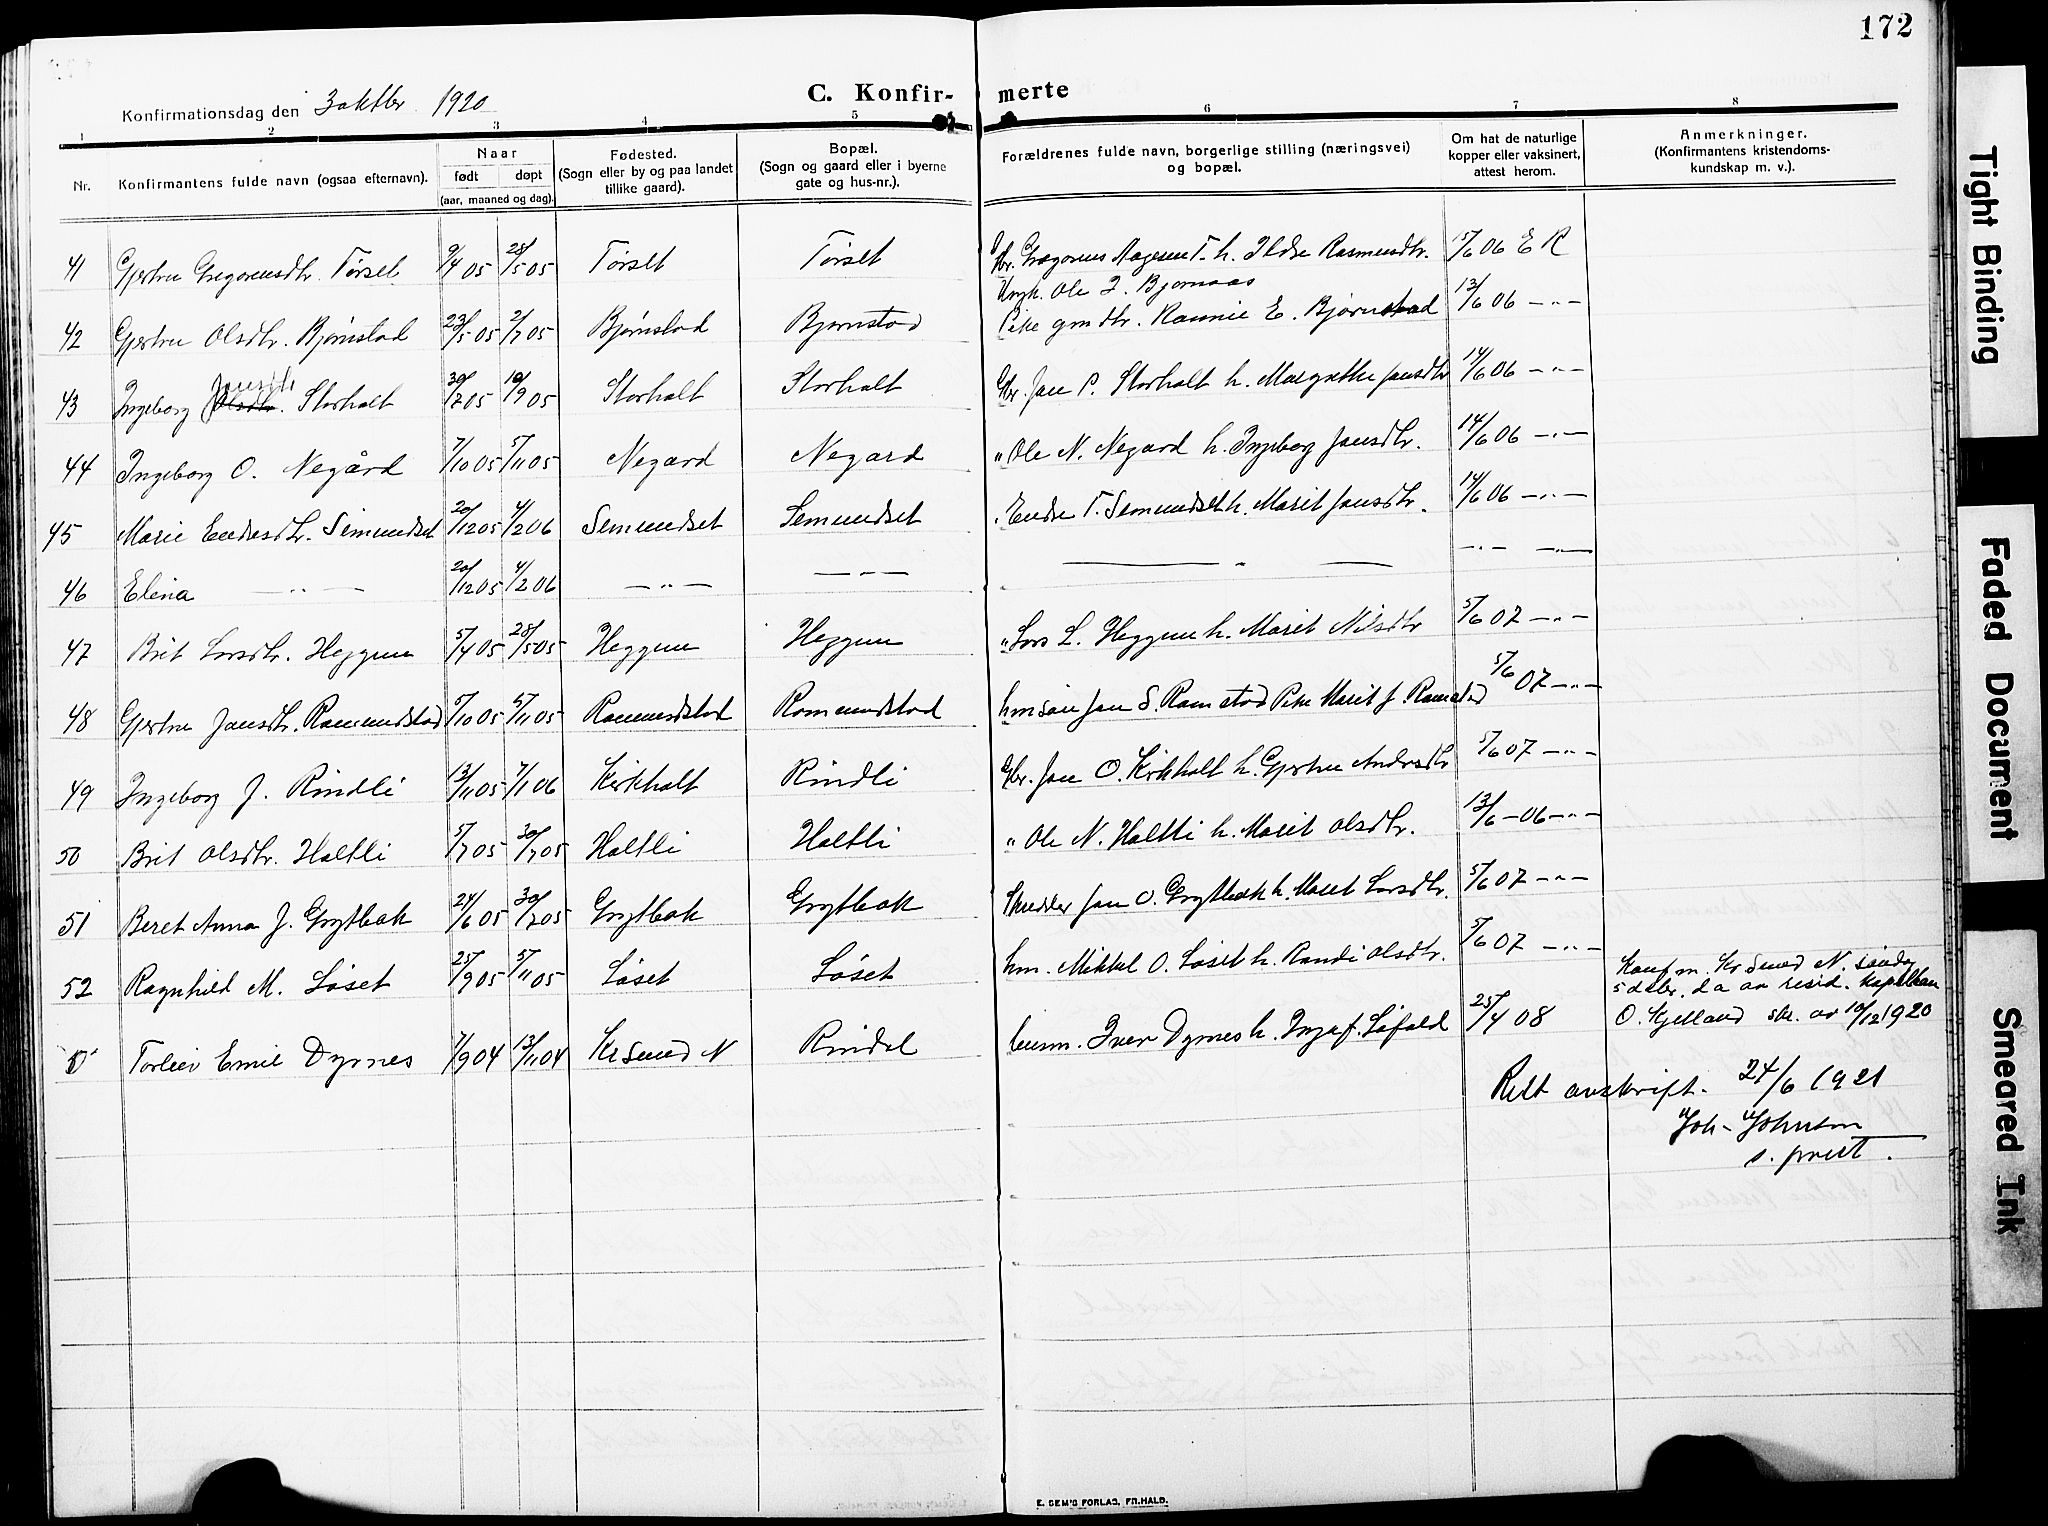 172
Konfirmationsdag den 3 oktbr 1920
C. Konfirmerte
1 2 3 4 5 6 7 8
Nr. Konfirmantens fulde navn (ogsaa efternavn). Naar født døpt (aar, maaned og dag). Fødested. (Sogn eller by og paa landet tillike gaard). Bopæl. (Sogn og gaard eller i byerne gate og hus-nr.). Forældrenes fulde navn, borgerlige stilling (næringsvei) og bopæl. Om hat de naturlige kopper eller vaksinert, attest herom. Anmerkninger. (Konfirmantens kristendoms-kundskap m. v.).
41 Gjertru Gregoriusdtr. Tørset 9/4 05 28/5 05 Tørset Tørset Gbr. Gregorius Aagesen T. h. Ildse Rasmusdtr. 15/6 06 E R
Ungk. Ole I. Bjørnaas
42 Gjertru Olsdtr. Bjørnstad 23/5 05 2/7 05 Bjørnstad Bjørnstad Pike gmdtr. Rannie E. Bjørnstad 13/6 06 -"-
43 Ingeborg Olsdtr. Jansdtr. Storholt 30/7 05 10/9 05 Storholt Storholt Gbr. Jan P. Storholt h. Margrethe Jansdtr 14/6 06 -"-
44 Ingeborg O. Negård 7/10 05 5/11 05 Negard Negard " Ole N. Negard h. Ingeborg Jansdtr. 14/6 06 -"-
45 Marie Endresdtr. Semundset 20/12 05 4/2 06 Semundset Semundset " Endre T. Semundset h. Marit Jansdtr. 14/6 06 -"-
46 Elina -"- 20/12 05 4/2 06 -"- -"- -"- -"- -"-
47 Brit Larsdtr. Heggem 5/4 05 28/5 05 Heggem Heggem " Lars L. Heggem h. Marit Nilsdtr 5/6 07 -"-
48 Gjertru Jansdtr. Romundstad 5/10 05 5/11 05 Romundstad Romundstad hmsøn Jan S. Ramstad Pike Marit J. Romstad 5/6 07 -"-
49 Ingeborg J. Rindli 13/11 05 7/1 06 Kirkholt Rindli Gbr. Jan O. Kirkholt h. Gjertru Andrsdtr 5/6 07 -"-
50 Brit Olsdtr. Holtli 5/7 05 30/7 05 Holtli Holtli " Ole N. Holtli h. Marit Olsdtr. 13/6 - 06 -"-
51 Beret Anna J. Grytbak 24/6 05 30/7 05 Grytbak Grytbak Skredder Jan O. Grytbak h. Marit Larsdtr. 5/6 07 -"-
52 Ragnhild M. Løset 25/9 05 5/11 05 Løset Løset hm. Mikkel O. Løset h. Randi Olsdtr. 5/6 07 -"-
Konf m. Kr sund N. søndag
5 dsbr. d a av resid. kapellan
O. Kjelland skr. av 10/12 1920
Torleiv Emil Dyrnes 7/9 04 13/11 04 Kr sund N Rindal Iver Dyrnes h. Inga f. Løfald 25/4 08
Rett avskrift. 24/6 1921
Joh- Johnson
s. prest.
E. SEM'S FORLAG, FR.HALD.
Tight Binding
Faded Document
Smeared Ink